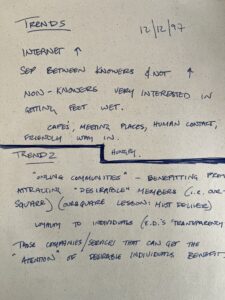 TRENDS
12/12/97
INTERNET ↑
SEP BETWEEN KNOWERS & NOT ↑
NON-KNOWERS VERY INTERESTED IN
GETTING FEET WET.
CAFES, MEETING PLACES, HUMAN CONTACT,
FRIENDLY WAY IN.
HUNGRY.
TREND 2
"ONLINE COMMUNITIES" - BENEFITTING FROM
ATTRACTING "DESIRABLE" MEMBERS (i.e. OUR-
SQUARE) (OURSQUARE LESSON: MUST DELIVER)
LOYALTY TO INDIVIDUALS (E.D.'S "TRANSPARENCY
THOSE COMPANIES/SERVICES THAT CAN GET THE
"ATTENTION" OF DESIRABLE INDIVIDUALS BENEFIT